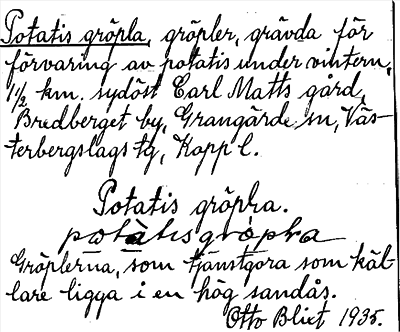 Potatis gröpla, gröpler, grävda för
förvaring av potatis under vintern,
1½ km. sydöst Carl Matts gård,
Bredberget by, Grangärde sn, Väs-
terbergslags tg, Kopp l.
Potatis gröpra.
potatisgröpra
Gröplerna, som tjänstgöra som käl-
lare ligga i en hög sandås.
Otto Blixt 1935.